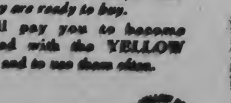 are ready to buy.
pay you to become
with the YELLOW
and to use them often.